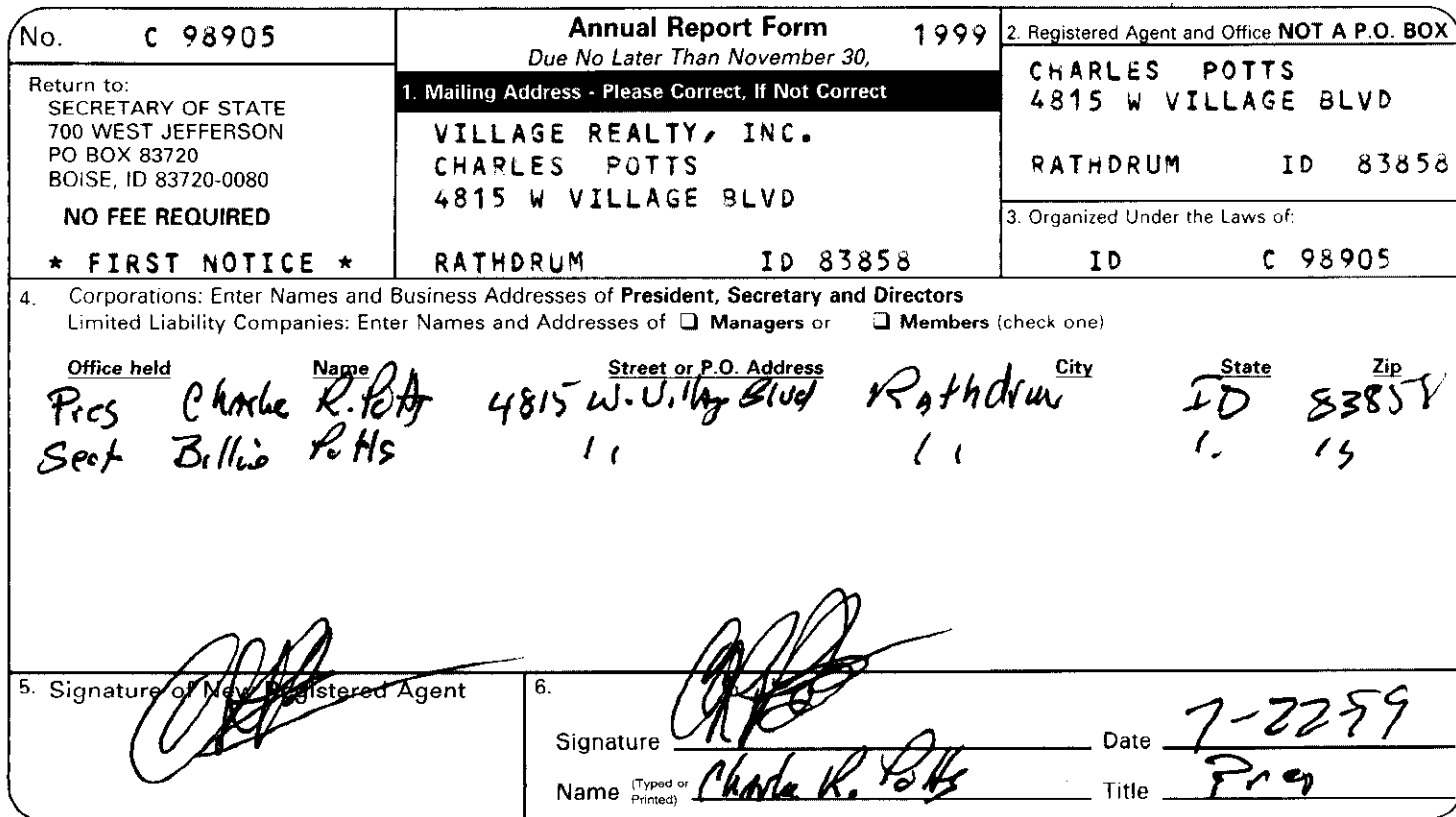 No. C 98905
Return to:
SECRETARY OF STATE
700 WEST JEFFERSON
PO BOX 83720
BOISE, ID 83720-0080
NO FEE REQUIRED
* FIRST NOTICE *
Annual Report Form 1999
Due No Later Than November 30,
1. Mailing Address - Please Correct, If Not Correct
VILLAGE REALTY, INC.
CHARLES POTTS
4815 W VILLAGE BLVD
RATHDRUM ID 83858
2. Registered Agent and Office NOT A P.O. BOX
CHARLES POTTS
4815 W VILLAGE BLVD
RATHDRUM ID 83858
3. Organized Under the Laws of:
ID C 98905
4. Corporations: Enter Names and Business Addresses of President, Secretary and Directors
Limited Liability Companies: Enter Names and Addresses of ❑ Managers or ❑ Members (check one)
Office held Name Street or P.O. Address City State Zip
Pres Charles R. Potts 4815 W. Village Blvd Rathdrum ID 83858
Sect Billie Potts " " " "
5. Signature of New Registered Agent
6.
Signature Date 7-22-99
Name (Typed or Printed) Charles R. Potts Title Pres